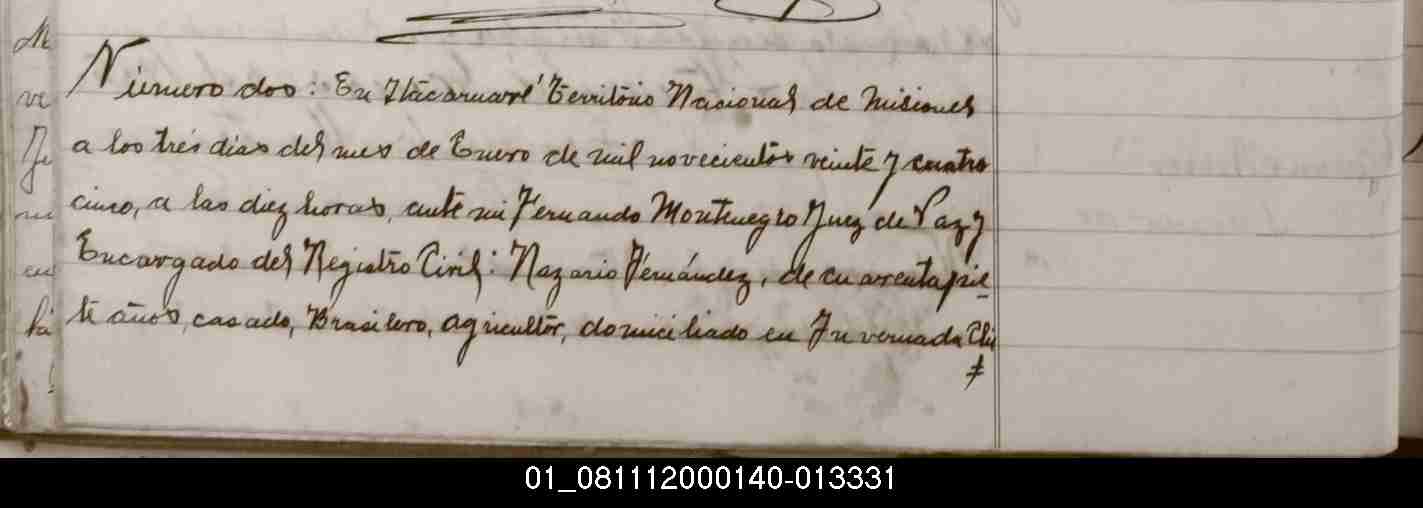 M
ve
Número dos: En Itácaruaré Território Nacional de Misiones
a los tres dias del mes de Enero de mil novecientos veinte y cuatro
cinco, a las diez horas, ante mi Fernando Montenegro Juez de Paz y
Encargado del Registro Civil: Nazario Fernández, de cuarenta y sie-
te años, casado, Brasilero, agricultor, domiciliado en Invernada Chi
01_081112000140-013331